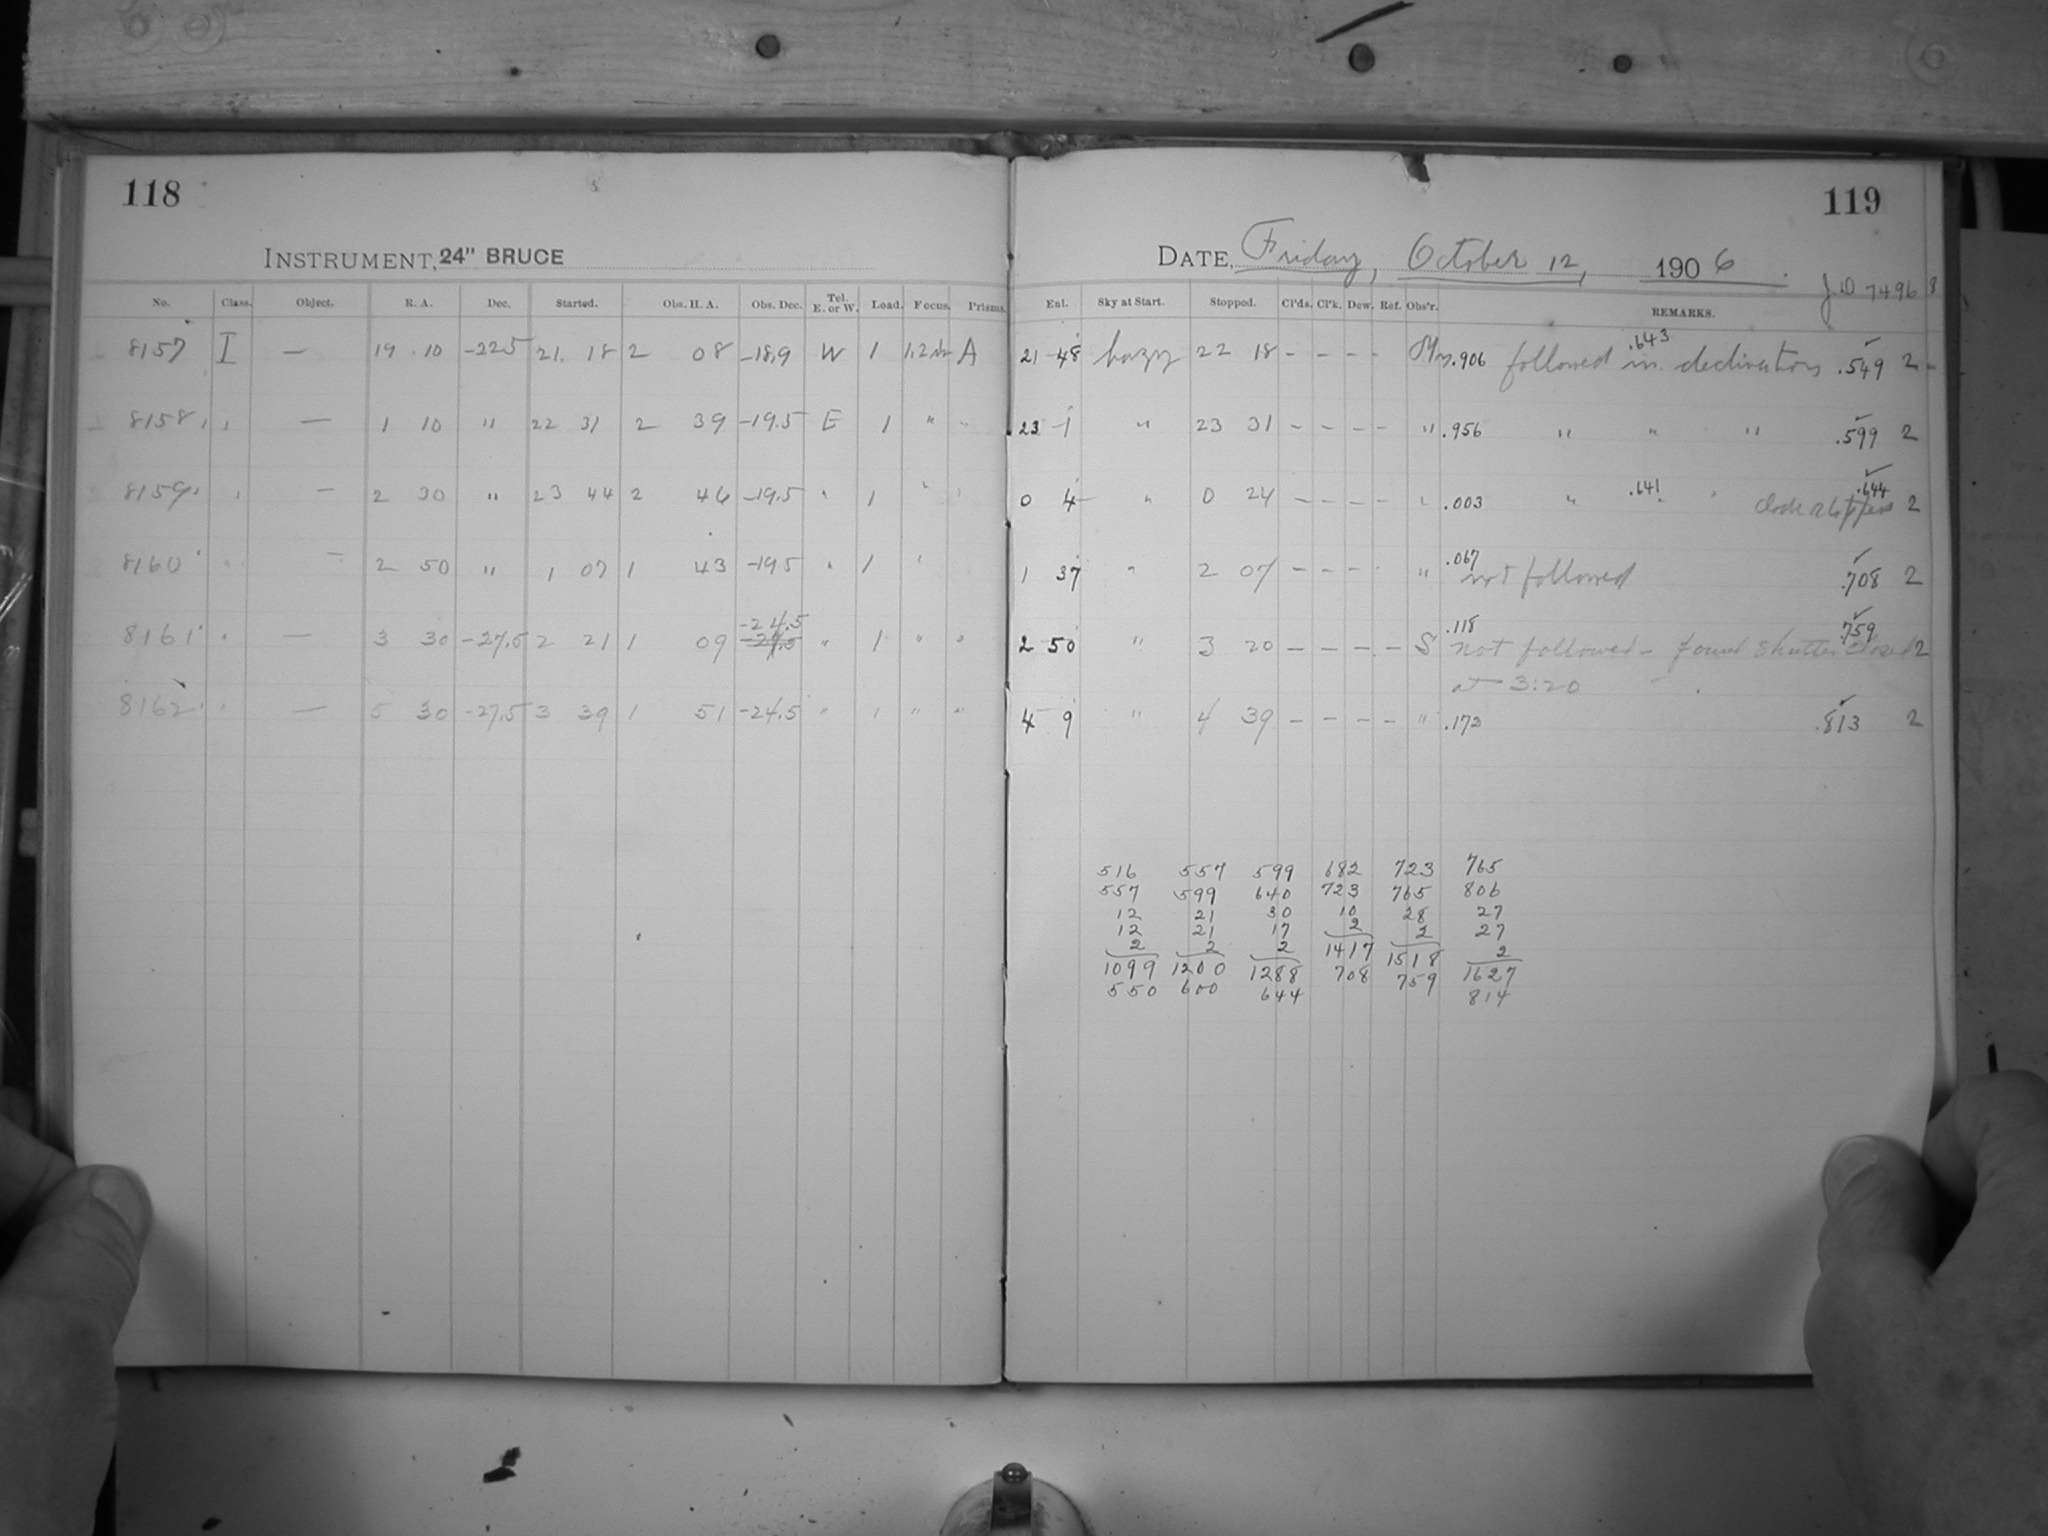 118
INSTRUMENT, 24" BRUCE
No. Class. Object. R. A. Dec. Started. Obs. H. A. Obs. Dec. Tel. E. or W. Load. Focus. Prisms.
8157 I — 19 10 -22.5 21 18 2 08 -18.9 W 1 A
8158 " — 1 10 " 22 31 2 39 -19.5 E 1 " "
8159 " — 2 30 " 23 44 2 46 -19.5 " 1 " "
8160 " — 2 50 " 1 07 1 43 -19.5 " 1 "
-24.5
8161 " — 3 30 -27.5 2 21 1 09 " 1 " "
8162 " — 5 30 -27.5 3 39 1 51 -24.5 " 1 " "
119
DATE, Friday, October 12, 1906.
J.D 7496 8
Enl. Sky at Start. Stopped. Cl'ds. Cl'k. Dew. Ref. Obs'r. REMARKS.
.643
21 48 hazy 22 18 - - - - .906 followed in declination .549 2
23 1 " 23 31 - - - - " .956 " " " .599 2
.641 .644
0 4 " 0 24 - - - - " .003 " " clock stopped 2
.067
1 37 " 2 07 - - - - " not followed .708 2
.118 .759
2 50 " 3 20 - - - - S not followed - found shutter closed 2
at 3:20
4 9 " 4 39 - - - - " .172 .813 2
516 557 599 682 723 765
557 599 640 723 765 806
12 21 30 10 28 27
12 21 17 2 2 27
2 2 2 1417 1518 2
1099 1200 1288 708 759 1627
550 600 644 814